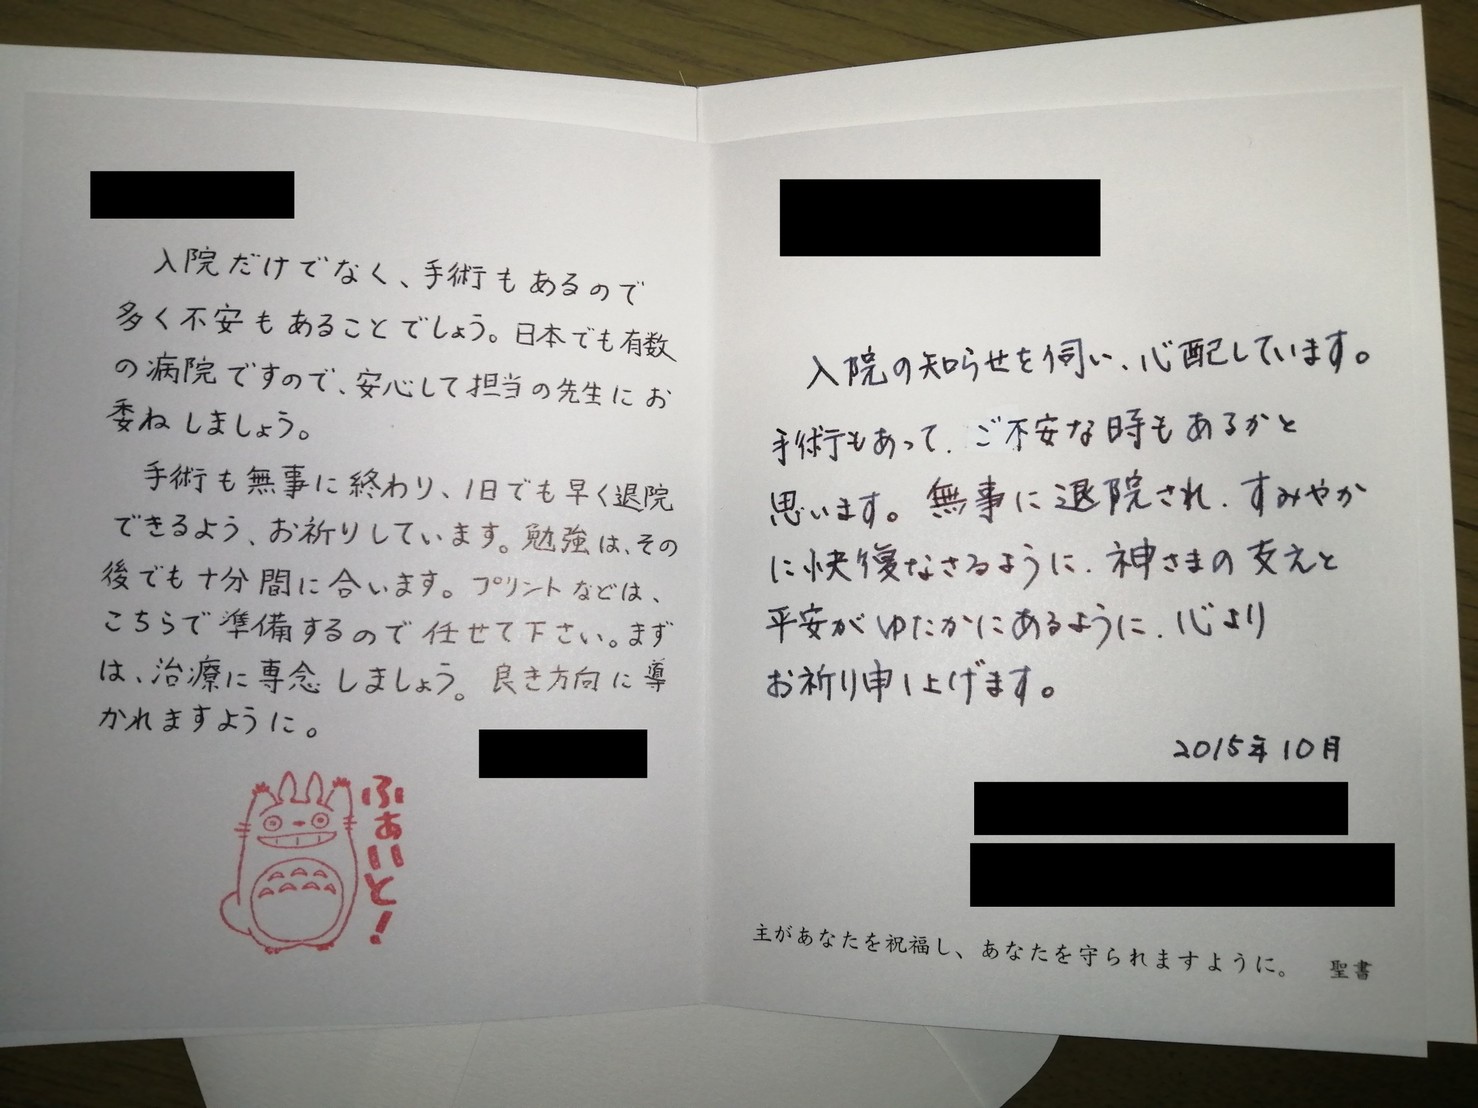 入院だけでなく、手術もあるので
多く不安もあることでしょう。日本でも有数
の病院ですので、安心して担当の先生にお
委ねしましょう。
手術も無事に終わり、1日でも早く退院
できるよう、お祈りしています。勉強は、その
後でも十分間に合います。プリントなどは、
こちらで準備するので任せて下さい。まず
は、治療に専念しましょう。良き方向に導
かれますように。
ふぁいと!
入院の知らせを伺い、心配しています。
手術もあって、ご不安な時もあるかと
思います。無事に退院され、すみやか
に快復なさるように、神さまの支えと
平安がゆたかにあるように、心より
お祈り申し上げます。
2015年10月
主があなたを祝福し、あなたを守られますように。 聖書